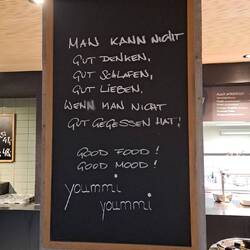 MAN KANN NICHT
GUT DENKEN,
GUT SCHLAFEN,
GUT LIEBEN,
WENN MAN NICHT
GUT GEGESSEN HAT!
GOOD FOOD!
GOOD MOOD!
yoummi
yoummi